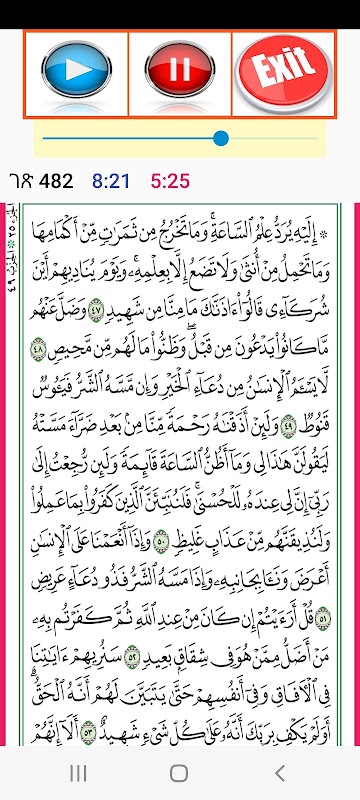 Exit
ገጽ 482 8:21 5:25
الجزء ٢٥ الحزب ٤٩
۞ إِلَيْهِ يُرَدُّ عِلْمُ ٱلسَّاعَةِۚ وَمَا تَخْرُجُ مِن ثَمَرَٰتٍ مِّنْ أَكْمَامِهَا
وَمَا تَحْمِلُ مِنْ أُنثَىٰ وَلَا تَضَعُ إِلَّا بِعِلْمِهِۦۚ وَيَوْمَ يُنَادِيهِمْ أَيْنَ
شُرَكَآءِى قَالُوٓا۟ ءَاذَنَّٰكَ مَا مِنَّا مِن شَهِيدٍ ٤٧ وَضَلَّ عَنْهُم
مَّا كَانُوا۟ يَدْعُونَ مِن قَبْلُۖ وَظَنُّوا۟ مَا لَهُم مِّن مَّحِيصٍ ٤٨
لَّا يَسْـَٔمُ ٱلْإِنسَٰنُ مِن دُعَآءِ ٱلْخَيْرِ وَإِن مَّسَّهُ ٱلشَّرُّ فَيَـُٔوسٌ
قَنُوطٌ ٤٩ وَلَئِنْ أَذَقْنَٰهُ رَحْمَةً مِّنَّا مِنۢ بَعْدِ ضَرَّآءَ مَسَّتْهُ
لَيَقُولَنَّ هَٰذَا لِى وَمَآ أَظُنُّ ٱلسَّاعَةَ قَآئِمَةً وَلَئِن رُّجِعْتُ إِلَىٰ
رَبِّىٓ إِنَّ لِى عِندَهُۥ لَلْحُسْنَىٰۚ فَلَنُنَبِّئَنَّ ٱلَّذِينَ كَفَرُوا۟ بِمَا عَمِلُوا۟
وَلَنُذِيقَنَّهُم مِّنْ عَذَابٍ غَلِيظٍ ٥٠ وَإِذَآ أَنْعَمْنَا عَلَى ٱلْإِنسَٰنِ
أَعْرَضَ وَنَـَٔا بِجَانِبِهِۦ وَإِذَا مَسَّهُ ٱلشَّرُّ فَذُو دُعَآءٍ عَرِيضٍ
٥١ قُلْ أَرَءَيْتُمْ إِن كَانَ مِنْ عِندِ ٱللَّهِ ثُمَّ كَفَرْتُم بِهِۦ
مَنْ أَضَلُّ مِمَّنْ هُوَ فِى شِقَاقٍۭ بَعِيدٍ ٥٢ سَنُرِيهِمْ ءَايَٰتِنَا
فِى ٱلْءَافَاقِ وَفِىٓ أَنفُسِهِمْ حَتَّىٰ يَتَبَيَّنَ لَهُمْ أَنَّهُ ٱلْحَقُّۗ
أَوَلَمْ يَكْفِ بِرَبِّكَ أَنَّهُۥ عَلَىٰ كُلِّ شَىْءٍ شَهِيدٌ ٥٣ أَلَآ إِنَّهُمْ